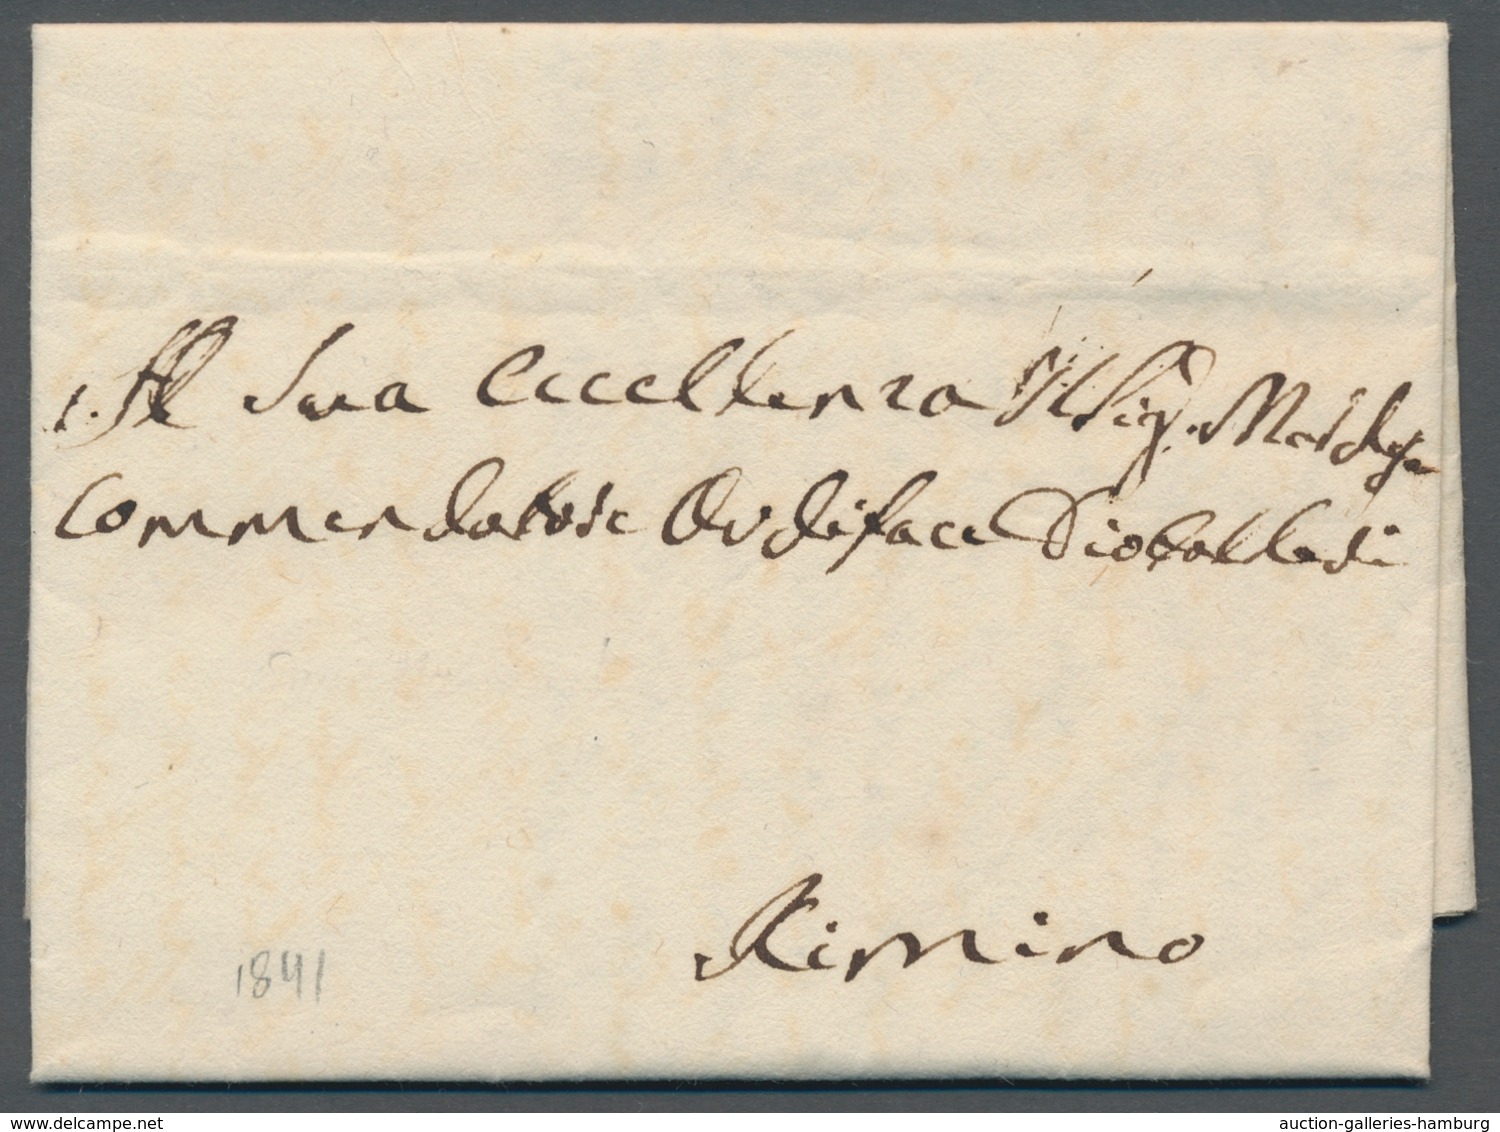 Al Sua Eccellenza Il Sig.
Commendatore Audiface Diotallevi
Rimino
1841
www.delcampe.net
auction-galleries-hamburg